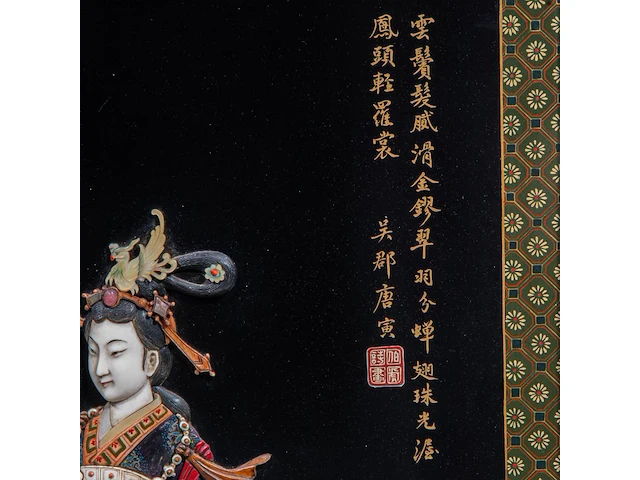 雲鬢髮膩滑金鏐翠羽分蟬翅珠光渥
鳳頭輕羅裳
吳郡唐寅